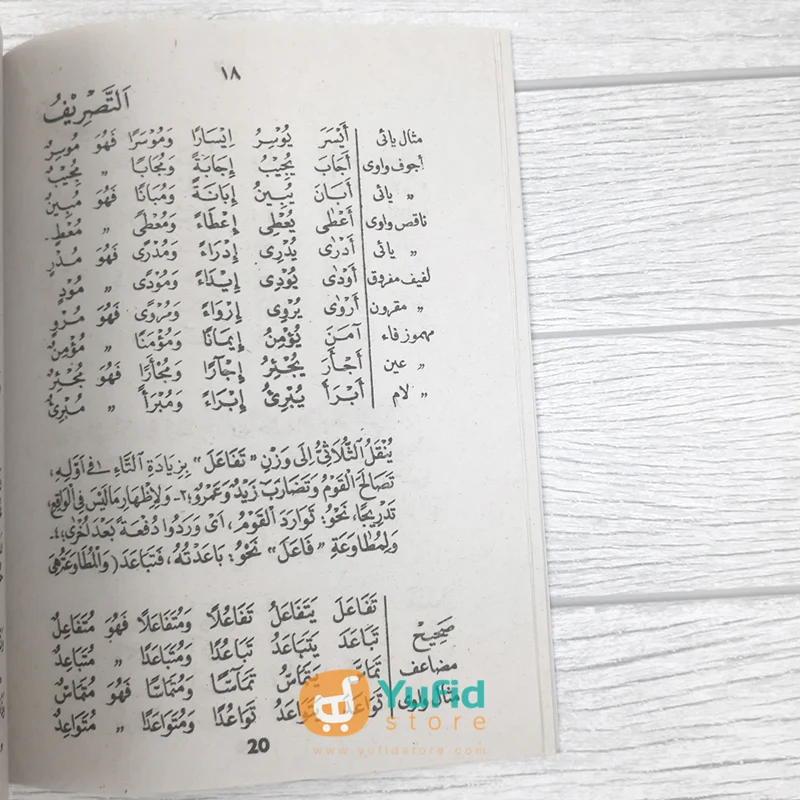 ١٨
اَلتَّصْرِيْفُ
مثال يائى أَيْسَرَ يُوْسِرُ اِيْسَارًا وَمُوْسَرًا فَهُوَ مُوْسِرٌ
أجوف واوى أَجَابَ يُجِيْبُ إِجَابَةً وَمُجَابًا „ مُجِيْبٌ
„ يائى أَبَانَ يُبِيْنُ إِبَانَةً وَمُبَانًا فَهُوَ مُبِيْنٌ
ناقص واوى أَعْطٰى يُعْطِى إِعْطَاءً وَمُعْطًى „ مُعْطٍ
„ يائى أَدْرٰى يُدْرِى إِدْرَاءً وَمُدْرًى فَهُوَ مُدْرٍ
لفيف مفروق أَوْدٰى يُوْدِى إِيْدَاءً وَمُوْدًى „ مُوْدٍ
„ مقرون أَرْوٰى يُرْوِى إِرْوَاءً وَمُرْوًى فَهُوَ مُرْوٍ
مهموز فاء آمَنَ يُؤْمِنُ إِيْمَانًا وَمُؤْمَنًا „ مُؤْمِنٌ
„ عين أَجْأَرَ يُجْئِرُ إِجْآرًا وَمُجْأَرًا فَهُوَ مُجْئِرٌ
„ لام أَبْرَأَ يُبْرِئُ إِبْرَاءً وَمُبْرَأً „ مُبْرِئٌ
يُنْقَلُ الثُّلَاثِىُّ اِلَى وَزْنِ " تَفَاعَلَ " بِزِيَادَةِ التَّاءِ فِى أَوَّلِهِ،
تَصَالَحَ الْقَوْمُ وَتَضَارَبَ زَيْدٌ وَعَمْرٌو؛ ٢- وَلِإِظْهَارِ مَا لَيْسَ فِى الْوَاقِعِ
تَدْرِيْجًا، نَحْوُ: تَوَارَدَ الْقَوْمُ، أَىْ وَرَدُوْا دُفْعَةً بَعْدَ أُخْرٰى؛ ٤-
وَلِمُطَاوَعَةِ " فَاعَلَ " نَحْوُ: بَاعَدْتُهُ، فَتَبَاعَدَ ( وَالْمُطَاوَعَةُ هِىَ
صَحِيْحٌ تَفَاعَلَ يَتَفَاعَلُ تَفَاعُلًا وَمُتَفَاعَلًا فَهُوَ مُتَفَاعِلٌ
تَبَاعَدَ يَتَبَاعَدُ تَبَاعُدًا وَمُتَبَاعَدًا „ مُتَبَاعِدٌ
مضاعف تَمَاسَّ يَتَمَاسُّ تَمَاسًّا وَمُتَمَاسًّا فَهُوَ مُتَمَاسٌّ
مثال واوى تَوَاعَدَ يَتَوَاعَدُ تَوَاعُدًا وَمُتَوَاعَدًا „ مُتَوَاعِدٌ
20
Yufid
store
www.yufidstore.com